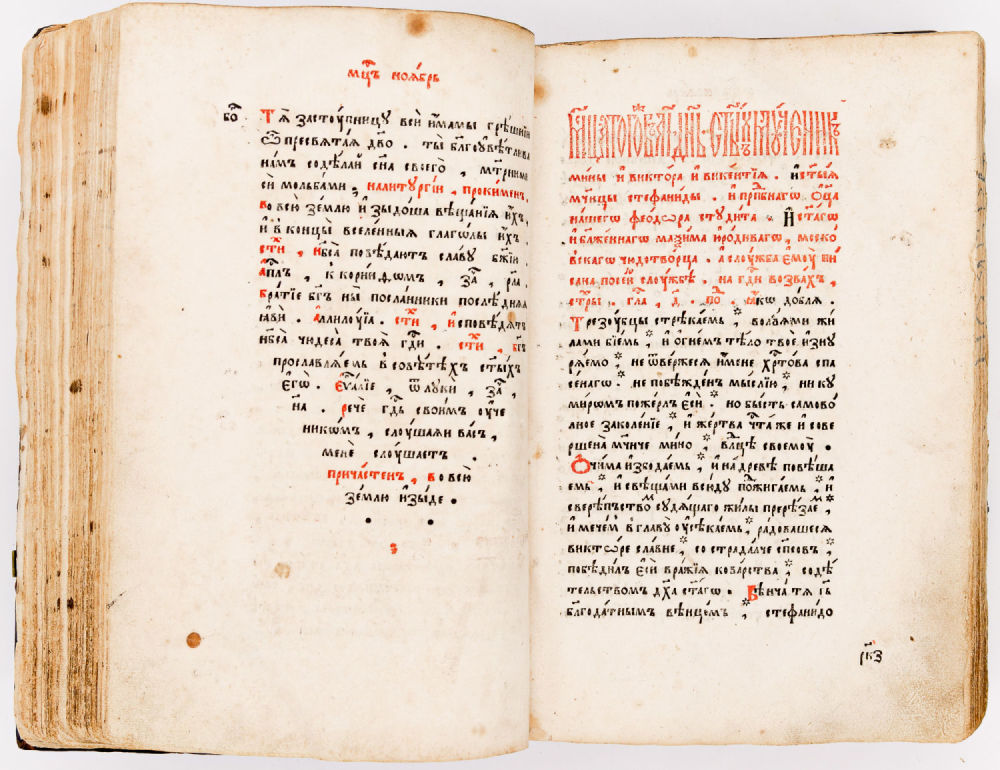 мцⷭ҇ъ ноѧ́брь
бо҃
Тѧ̀ застоу́пницу всѝ и҆́мамы грѣ́шнїи
ѿ пресвѧта́ѧ дв҃о . ты̀ бл҃гоꙋвѣ́тлива
на́мъ содѣ́лай сн҃а своего̀ , мт҃рними
сѝ мольба́ми , налитургі́и , проки́менъ .
во всю̀ зе́млю и҆зыдо́ша вѣща́нїѧ и҆́хъ ,
и҆ в концы̀ вселе́нныѧ глаго́лы и҆́хъ .
сти́х , нб҃са̀ повѣ́даютъ сла́ву бж҃їю .
а҆пⷭ҇лъ , к кори́нѳѡмъ , за҃ , рл҃а .
бра́тїе бг҃ъ ны̀ посла́нники послѣ́днѧѧ
ꙗ҆вѝ . а҆ллилу́їа . сти́х , и҆сповѣ́дѧтъ
нб҃са̀ чюдеса̀ твоѧ̀ гдⷭ҇и . сти́х , бг҃ъ
прославлѧ́емъ в совѣ́тѣхъ ст҃ы́хъ
є҆гѡ̀ . є҆ѵⷢ҇а́лїе , ѿ лукѝ , за҃ ,
на҃ . речѐ гдⷭ҇ь свои́мъ оу҆че
никѡ́мъ , слоу́шаѧи ва́съ ,
менѐ слоу́шаетъ .
прича́стенъ , во всю̀
зе́млю и҆зы́де .
мцⷭ҇а того́же в҃ аі҃ дн҃ь ст҃ы́хъ мч҃никъ
мины̀ и҆ ви́ктора и҆ вике́нтїѧ . и҆ ст҃ы́ѧ
мч҃ницы стефани́ды . и҆ прпⷣбнаго ѻ҆ц҃а̀
на́шего ѳео́дѡра студи́та . И҆ ст҃а́гѡ
и҆ бл҃же́ннагѡ макси́ма ю҆ро́диваго , моско́
вскаго чюдотво́рца . а҆ слоу́жба є҆моу̀ пи
сана посе́й слоу́жбѣ . на гдⷭ҇и возва́хъ ,
стⷯры . гла́с , д҃ . поⷣ . ꙗ҆́кѡ до́блѧ .
Трезоу́бцы стрѣка́емь , волуѧ́ми жи
лами бїе́мь , и҆ огне́мъ тѣ́ло твоѐ изну
рѧ́емо , не ѿве́ржесѧ и҆́мене хрⷭ҇то́ва спа
се́нагѡ . не побѣжде́нъ мы́слїю , ни ку
ми́рѡмъ поже́рлъ є҆сѝ . но бы́сть самово́
лное заколе́нїе , и҆ же́ртва чⷭ҇та́ же и҆ сове
ршена мч҃ниче ми́но , влⷣце своемоу̀ .
Ѻ҆чи́ма и҆збода́емь , и҆ на дре́вѣ повѣша
емь , и҆ свѣща́ми всю́ду пожига́емь , и҆
сверѣ́пьство́м судѧ́щаго жи́лы прерѣза́еⷨ ,
и҆ мече́м в главу̀ оу҆сѣка́емь , ра́довашесѧ
викто́ре сла́вне , со страда́лче сп҃совъ ,
побѣди́лъ є҆сѝ вра́жїѧ кова́рства , содѣ́
тельством дх҃а ст҃а́гѡ . Вѣнча́ тѧ гдⷭ҇ь
бл҃года́тнымъ вѣнце́мъ , стефани́до
рк҃з